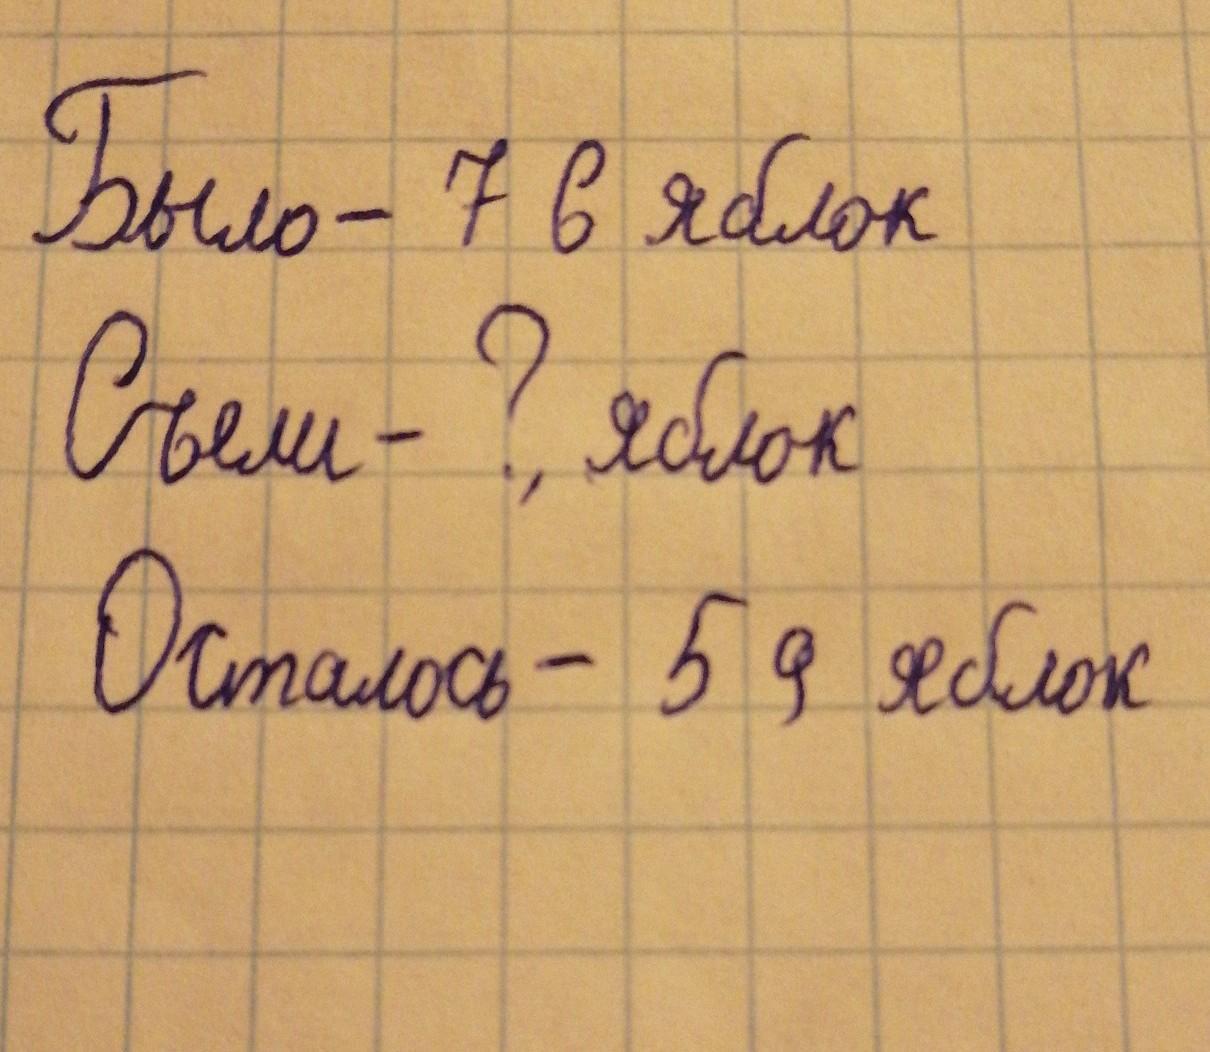 Было - 76 яблок
Съели - ?, яблок
Осталось - 59 яблок